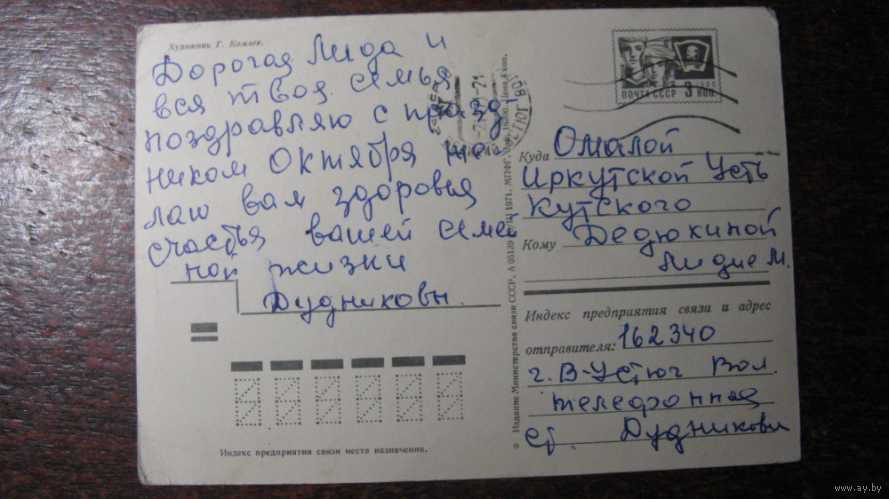 Художник Г. Комлев.
Дорогая Лида и
вся твоя семья
поздравляю с празд
ником Октября же
лаю вам здоровья
счастья вашей семей
ной жизни
Дудниковы.
Индекс предприятия связи места назначения.
ПОЧТА СССР 3 КОП
Куда Омалой
Иркутской Усть
Кутского
Кому Дедюкиной
Лидие М.
Индекс предприятия связи и адрес
отправителя: 162340
г. В-Устюг Вол.
телефонная
ст. Дудниковы
© Издание Министерства связи СССР. 1971.
www.ay.by